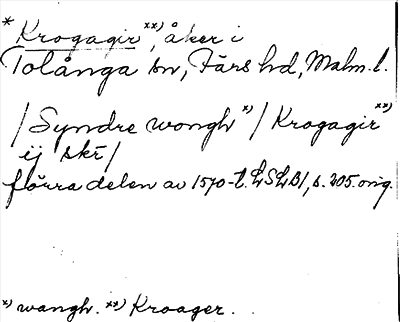 * Krogagir xx), åker i
Tolånga sn, Färs hd, Malm. l.
/ Syndre wongh x) / Krogagir xx)
ij skr̄ /
förra delen av 1570-t. LSLB1, s. 205. orig.
x) wangh. xx) Kroager.